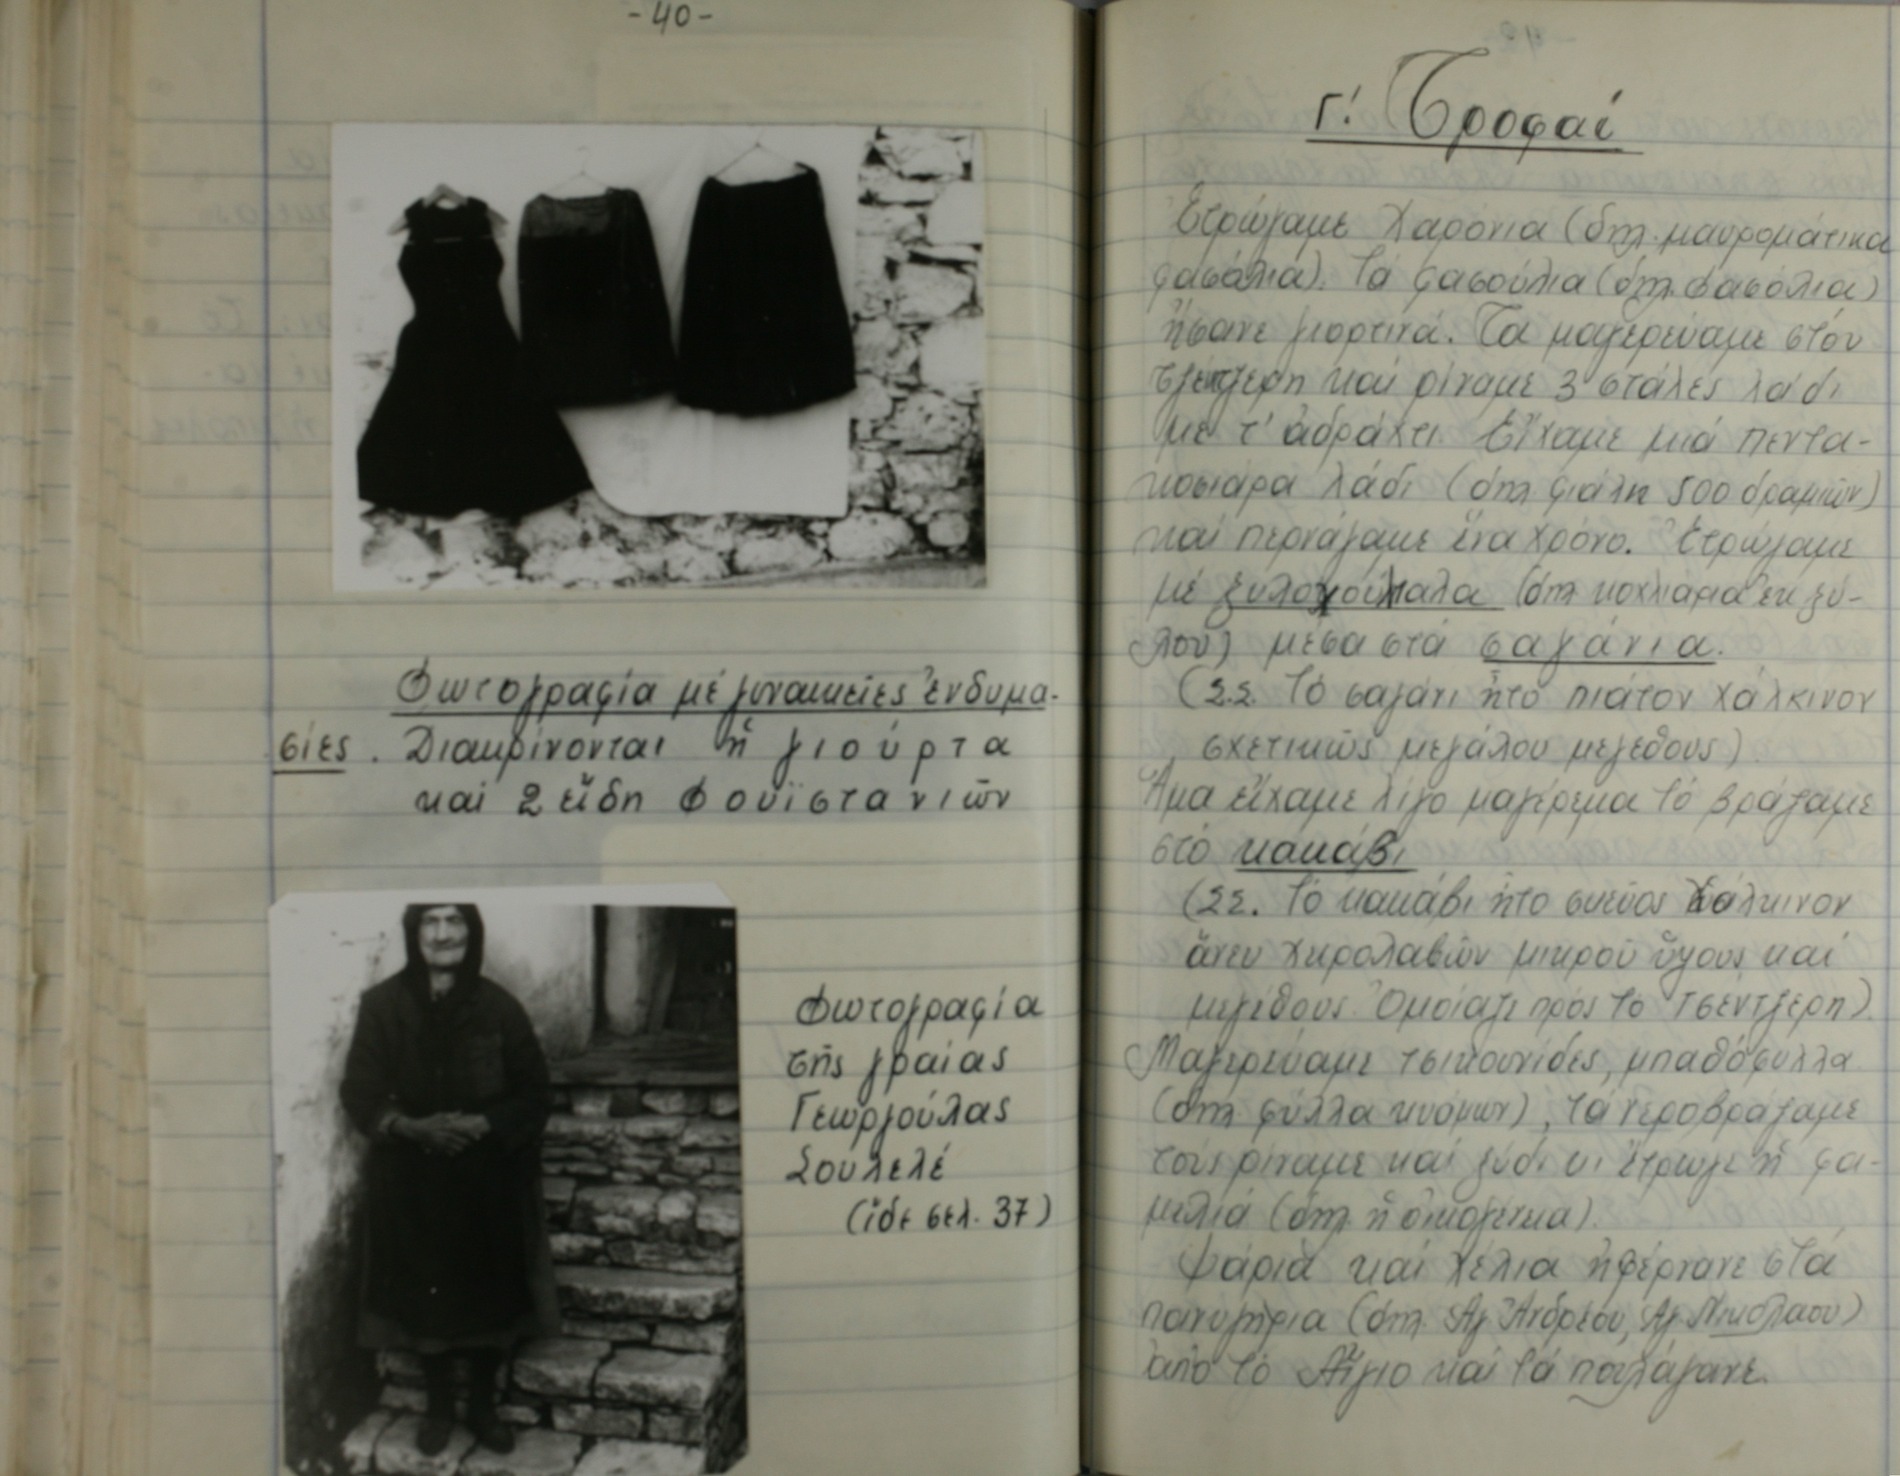 -40-
Φωτογραφία μέ γυναικεῖες ἐνδυμα-
σίες. Διακρίνονται ἡ γιούρτα
καί 2 εἴδη φουϊστανιῶν
Φωτογραφία
τῆς γραίας
Γεωργούλας
Σουλελέ
(ἴδε σελ. 37)
Γ! Τροφαί
Ἐτρώγαμε χαρόνια (δηλ. μαυρομάτικα
φασόλια). Τά φασούλια (δηλ. φασόλια)
ἤσανε γιορτινά. Τα μαγερεύαμε στόν
τζέντζερη καί ρίναμε 3 στάλες λάδι
μέ τ' ἀδράχτι. Εἴχαμε μιά πεντα-
κοσιάρα λάδι (δηλ φιάλη 500 δραμιῶν)
καί περνάγαμε ἕνα χρόνο. Ἐτρώγαμε
μέ (δηλ κοχλιάρια ἐκ ξύ-
λου) μέσα στά σαγάνια.
(Σ.Σ. Τό σαγάνι ἦτο πιάτον χάλκινον
σχετικῶς μεγάλου μεγέθους)
Ἅμα εἴχαμε λίγο μαγέρεμα τό βράζαμε
στό κακάβι
(ΣΣ. Τό κακάβι ἦτο σκεῦος χάλκινον
ἄνευ χειρολαβῶν μικροῦ ὕψους καί
μεγέθους. Ὁμοίαζε πρός τό τσέντζερη).
Μαγερεύαμε τσικουνίδες, μπαθόφυλλα
(δηλ φύλλα κυάμων), τά νεροβράζαμε
τούς ρίναμε καί ξύδι κι ἔτρωγε ἡ φα-
μελιά (δηλ. ἡ οἰκογένεια).
Ψάρια καί χέλια ἠφέρνανε στά
πανυγήρια (δηλ Ἁγ Ἀνδρέου, Ἁγ Νικολάου)
ἀπό τό Αἴγιο καί τά πουλάγανε.